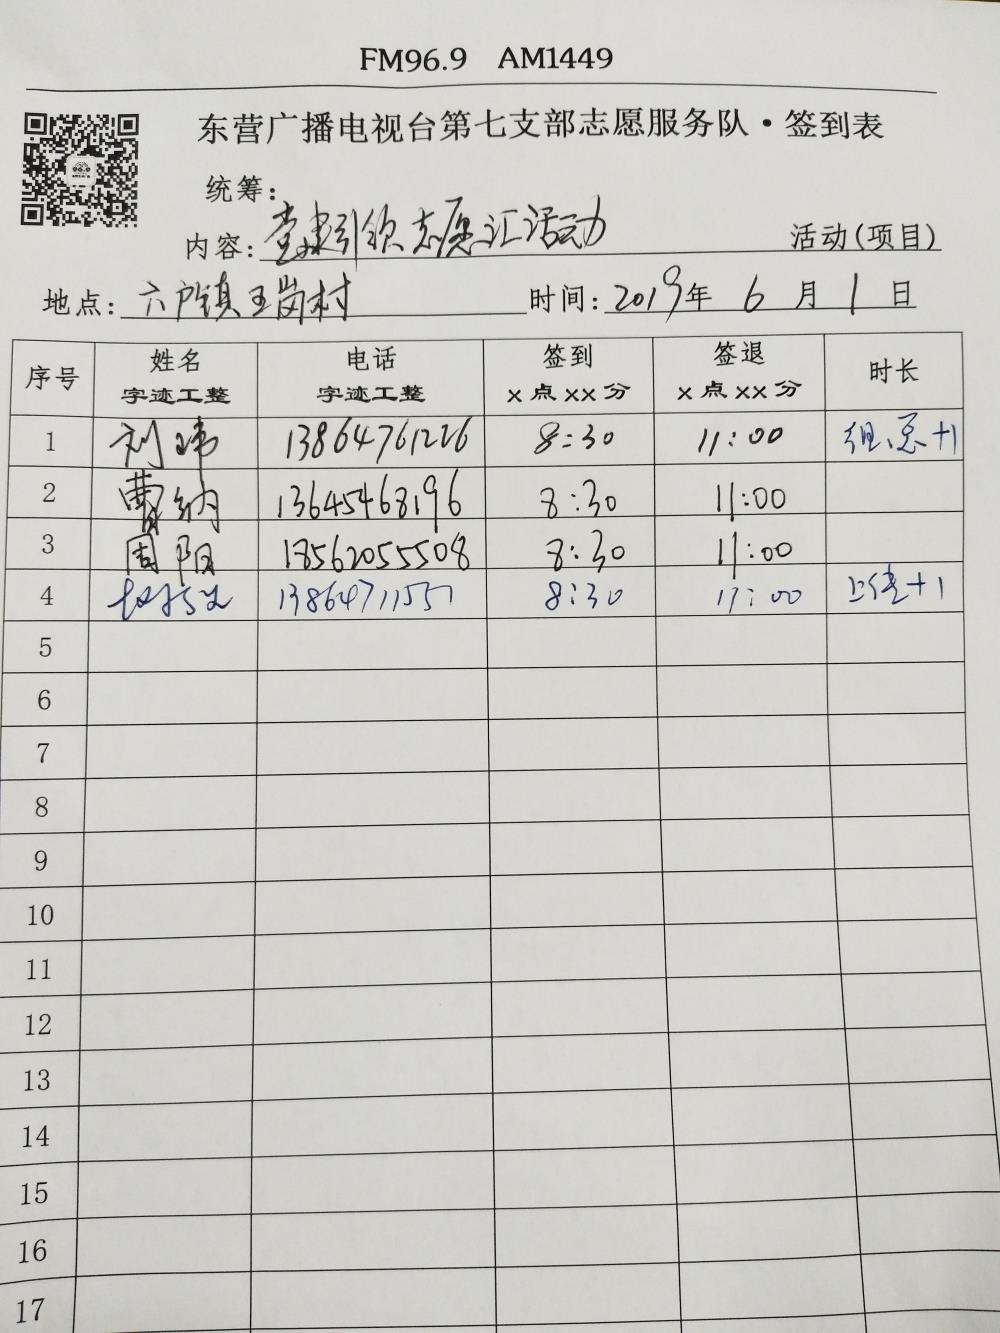 FM96.9 AM1449
东营广播电视台第七支部志愿服务队·签到表
统筹:
内容: 党建引领志愿汇活动 活动(项目)
地点: 六户镇王岗村 时间: 2019年 6 月 1 日
序号 姓名 电话 签到 签退 时长
字迹工整 字迹工整 x 点 xx 分 x 点 xx 分
1 刘玮 13864761226 8:30 11:00 组、总+1
2 曹纳 13645468196 8:30 11:00
3 周阳 18562055508 8:30 11:00
4 13864711551 8:30 11:00 +1
5
6
7
8
9
10
11
12
13
14
15
16
17